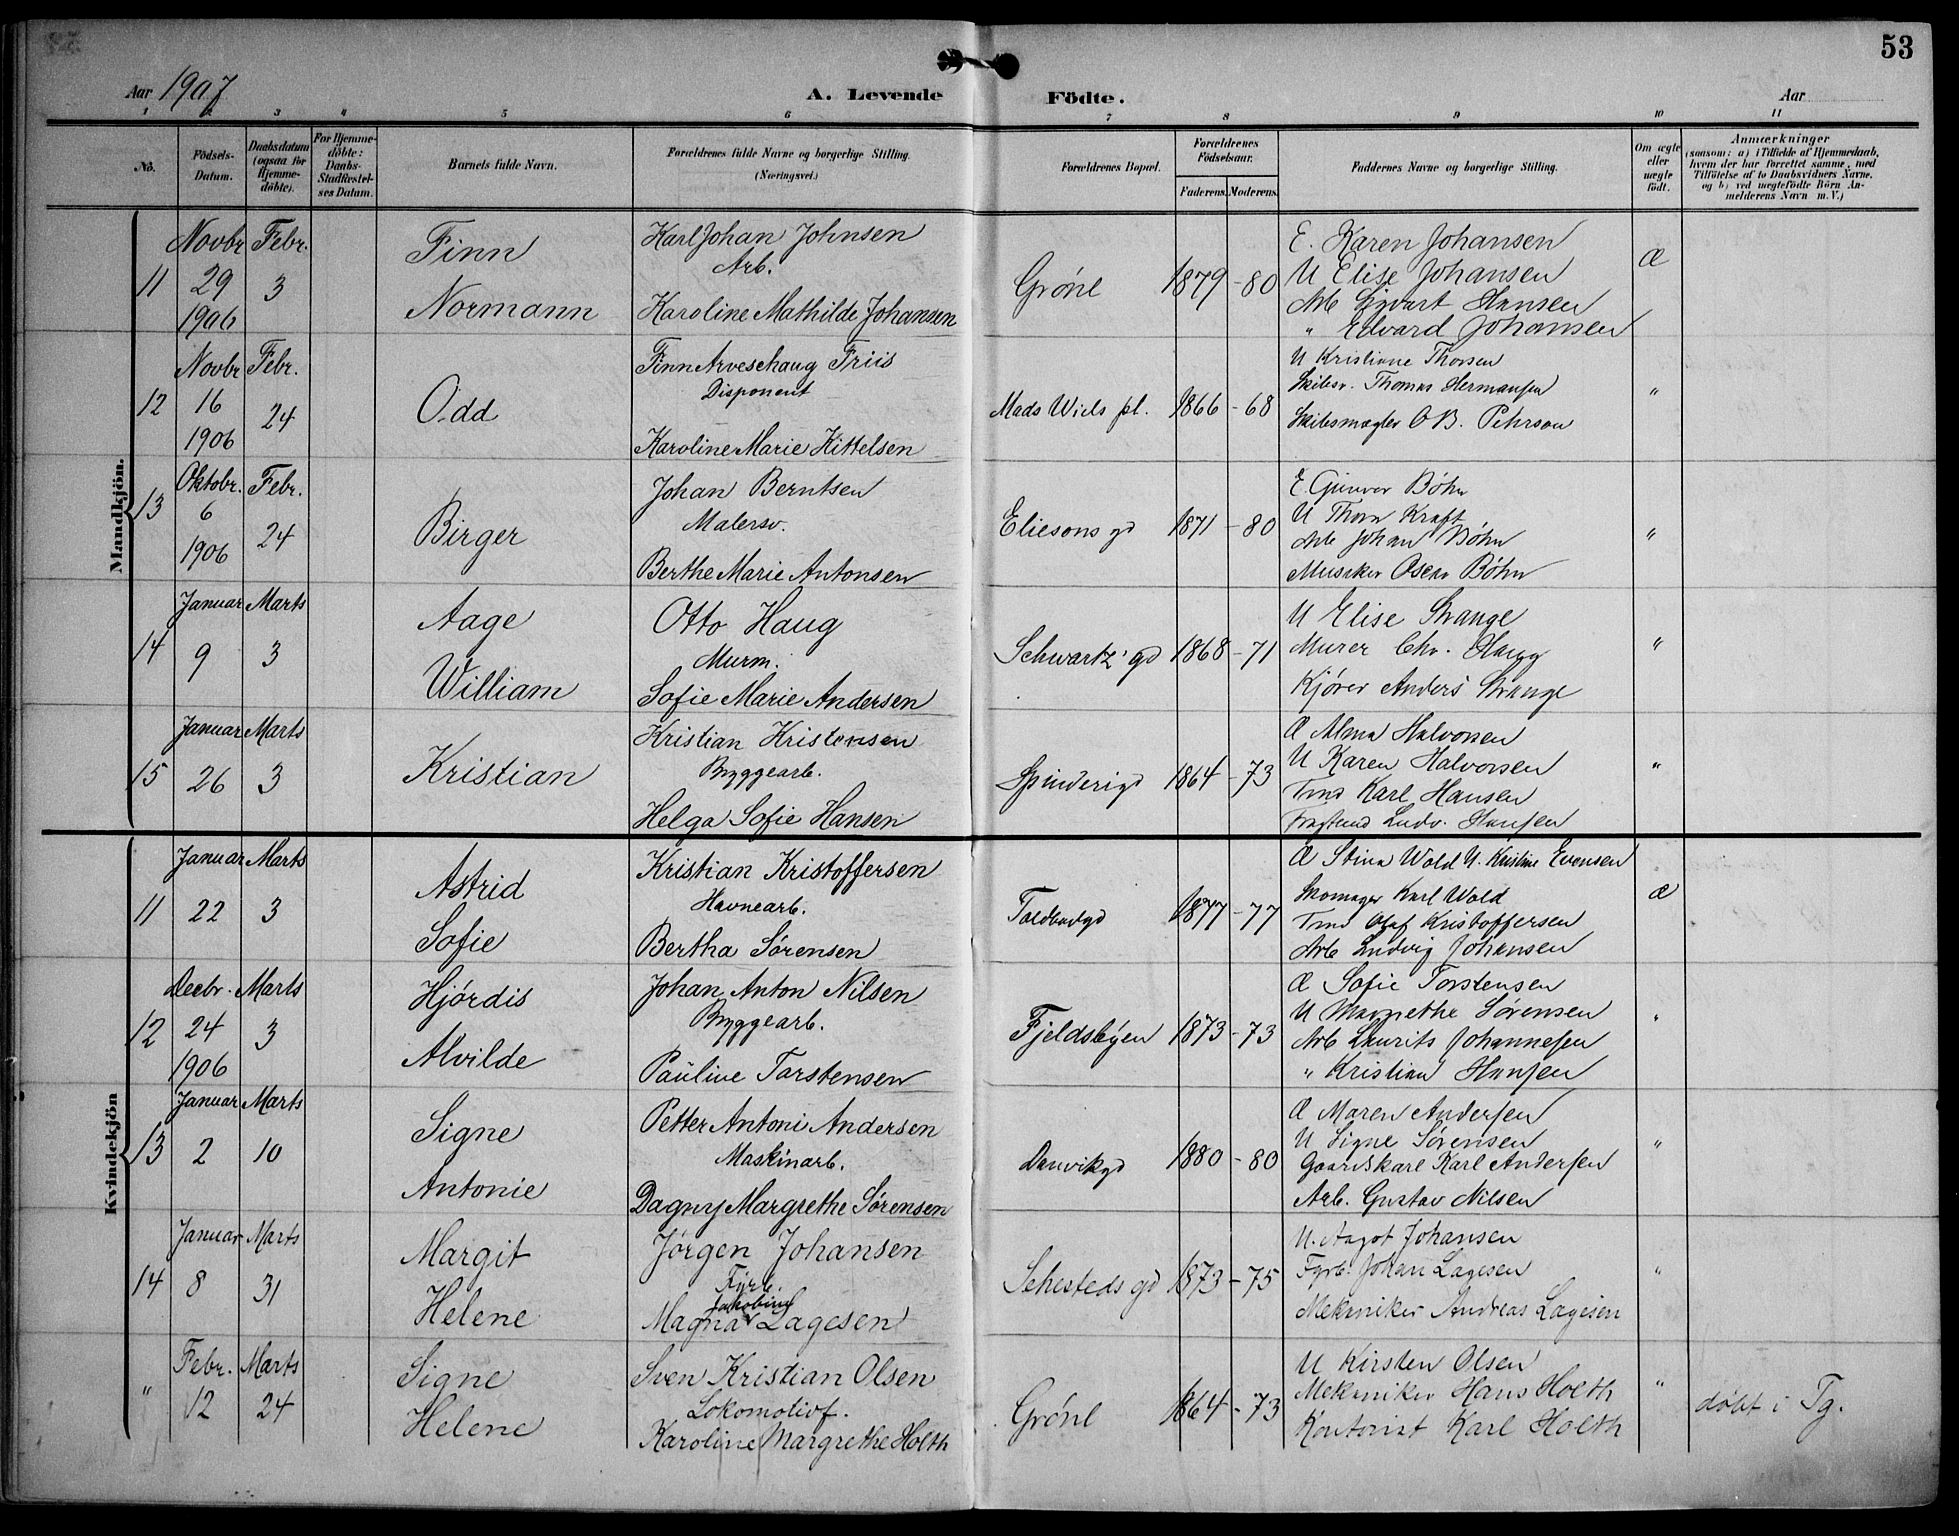 53
Aar 1907
A. Levende Födte.
Aar
1 2 3 4 5 6 7 8 9 10 11
No.
Födsels-Datum.
Daabsdatum (ogsaa for Hjemme-döbte).
For Hjemme-döbte: Daabs-Stadfæstel-ses Datum.
Barnets fulde Navn.
Forældrenes fulde Navne og borgerlige Stilling. (Næringsvei.)
Forældrenes Bopæl.
Forældrenes Födselsaar.
Faderens. Moderens.
Faddernes Navne og borgerlige Stilling.
Om ægte eller uægte födt.
Anmærkninger
(saasom: a) i Tilfælde af Hjemmedaab,
hvem der har forrettet samme, med
Tilföielse af to Daabsvidners Navne,
og b) ved uægtefödte Börn An-
melderens Navn m. V.)
Mandkjön.
11
Novbr 29 1906
Febr. 3
Finn
Normann
Karl Johan Johnsen
Arb.
Karoline Mathilde Johansen
Grønl
1879 - 80
E. Karen Johansen
U Elise Johansen
Arb Sigvart Hansen
" Edvard Johansen
Æ
12
Novbr 16 1906
Febr. 24
Odd
Finn Arveschaug Friis
Disponent
Karoline Marie Kittelsen
Mads Wiels pl.
1866 - 68
U Kristiane Thorsen
Skibsr. Thomas Hermansen
Skibsmægler O B. Pehrson
"
13
Oktobr. 6 1906
Febr. 24
Birger
Johan Berntsen
Malersv.
Berthe Marie Antonsen
Eliesons gd
1871 - 80
E. Gunvor Bøhn
U Thora Kraft
Arb Johan Bøhn
Musiker Oscar Bøhn
"
14
Januar 9
Marts 3
Aage
William
Otto Haug
Murm.
Sofie Marie Andersen
Schwartz' gd
1868 - 71
U Elise Strange
Murer Chr. Haug
Kjører Anders Strange
"
15
Januar 26
Marts 3
Kristian
Kristian Kristensen
Byggearb.
Helga Sofie Hansen
Spinderigd
1864 - 73
Æ Alma Halvorsen
U Karen Halvorsen
Tmd Karl Hansen
Ludv. Hansen
"
Kvindekjön
11
Januar 22
Marts 3
Astrid
Sofie
Kristian Kristoffersen
Havnearb.
Bertha Sørensen
Toldbodgd
1877 - 77
Æ Stina Wold U. Kristine Evensen
Skomager Karl Wold
Tmd Olaf Kristoffersen
Arb Ludvig Johansen
Æ
12
Decbr. 24 1906
Marts 3
Hjørdis
Alvilde
Johan Anton Nilsen
Byggearb.
Pauline Torstensen
Fjeldsbyen
1873 - 73
Æ Sofie Torstensen
U Magnethe Sørensen
Arb Laurits Johannesen
" Kristian Hansen
"
13
Januar 2
Marts 10
Signe
Antonie
Petter Antoni Andersen
Maskinarb.
Dagny Margrethe Sørensen
Danvikgd
1880 - 80
Æ Maren Andersen
U Signe Sørensen
Gaardskarl Karl Andersen
Arb. Gustav Nilsen
"
14
Januar 8
Marts 31
Margit
Helene
Jørgen Johansen
Fyrb.
Jakobine
Magna Lagesen
Sehesteds gd
1873 - 75
U. Aagot Johansen
Fyrb. Johan Lagesen
Mekaniker Andreas Lagesen
"
"
Febr. 12
Marts 24
Signe
Helene
Sven Kristian Olsen
Lokomotivf.
Karoline Margrethe Holth
Grønl
1864 - 73
U Kirsten Olsen
Mekaniker Hans Holth
Kontorist Karl Holth
"
døbt i Tg.